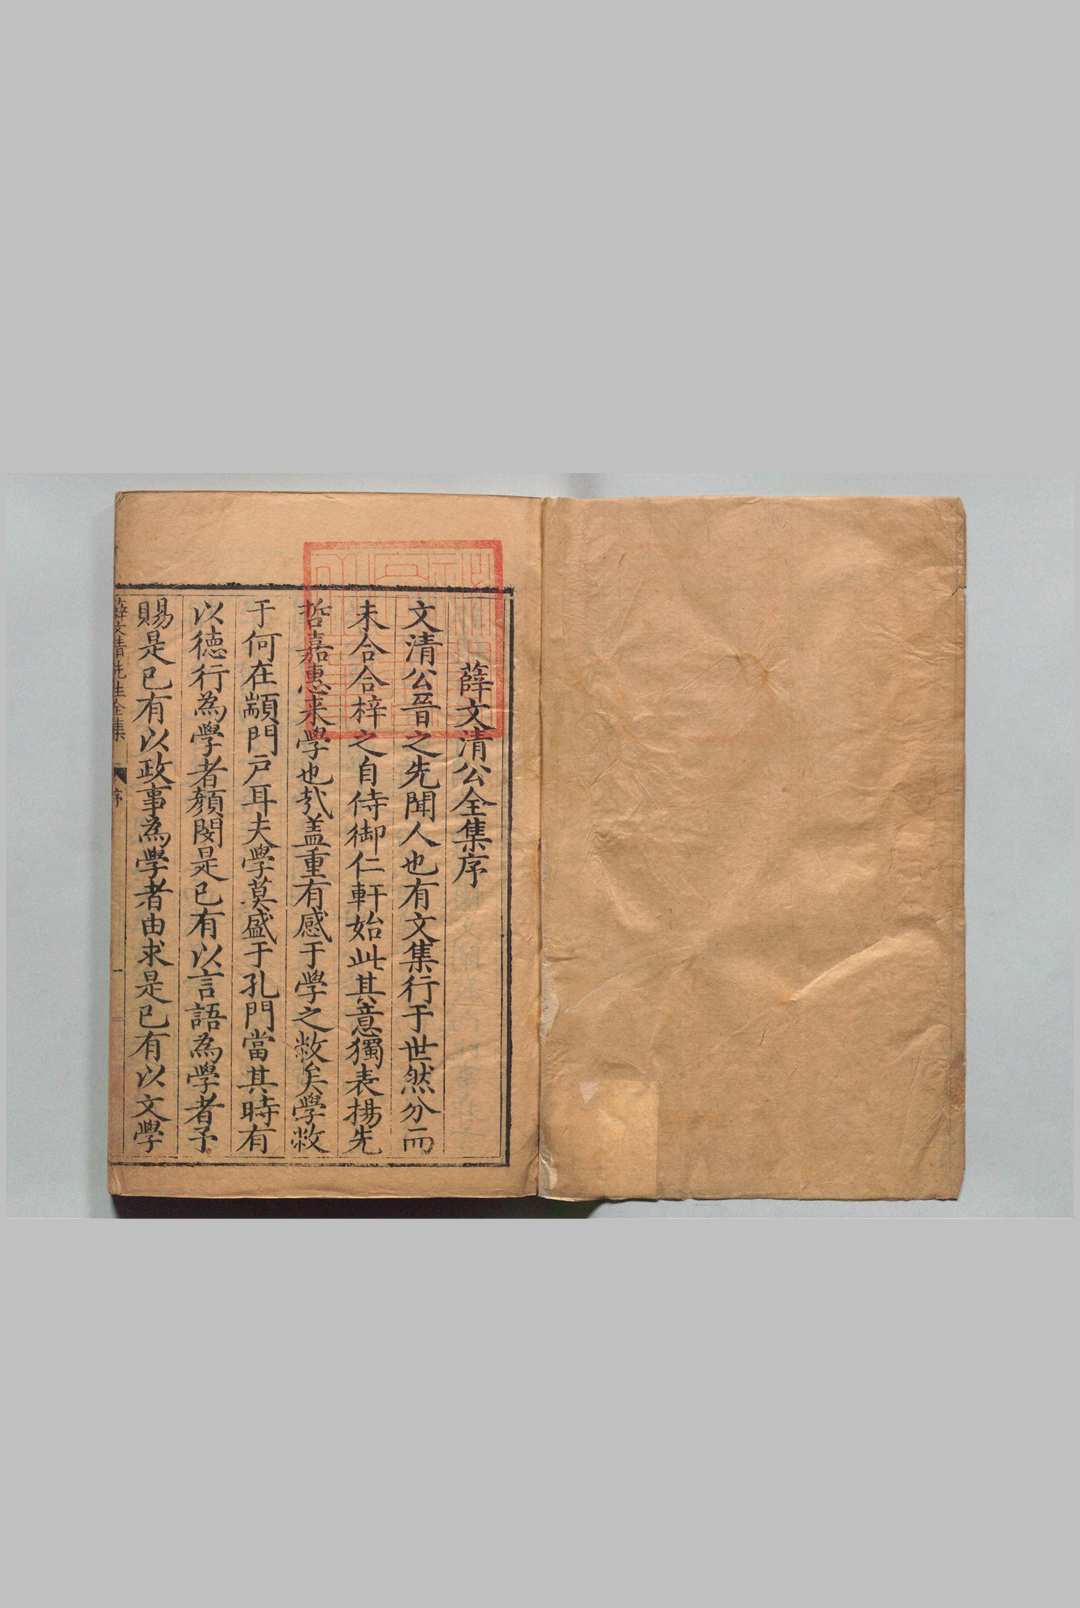 薛文清公全集序
文清公晉之先聞人也有文集行于世然分而
未合合梓之自侍御仁軒始此其意獨表揚先
哲嘉惠来學也㢤盖重有感于學之敝矣學敝
于何在顓門戸耳夫學莫盛于孔門當其時有
以德行為學者顏閔是已有以言語為學者予
賜是已有以政事為學者由求是已有以文學
薛文清先生全集
序
一